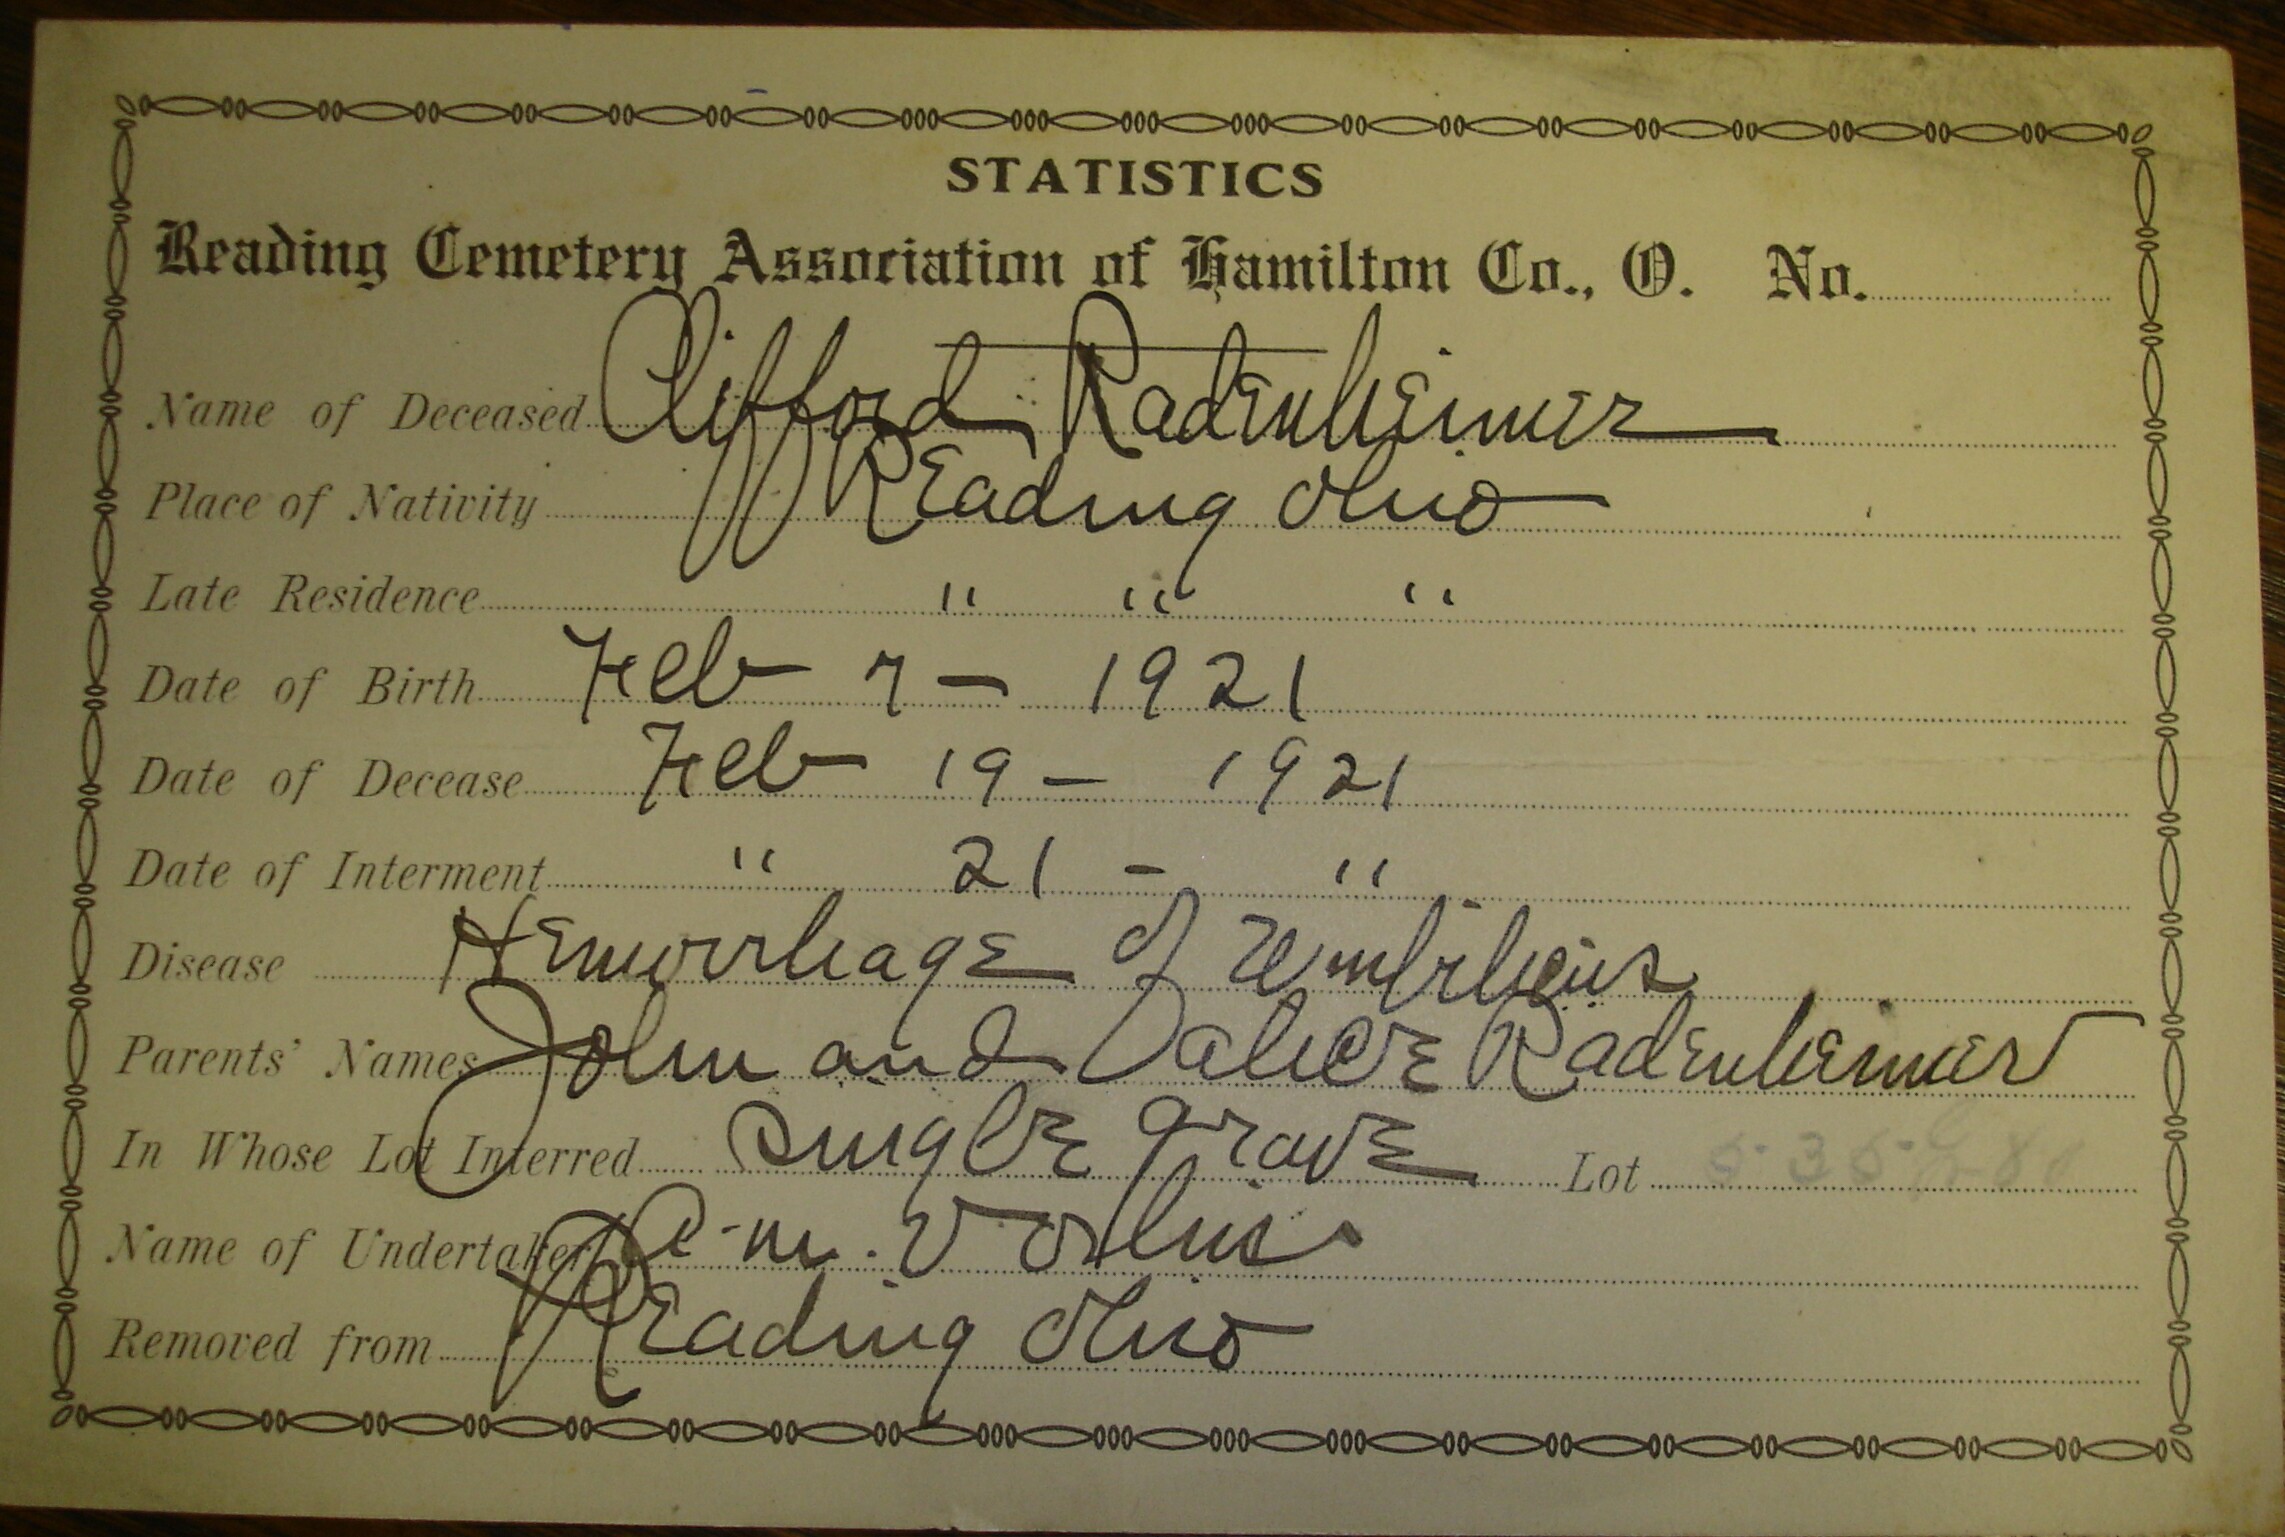 STATISTICS
Reading Cemetery Association of Hamilton Co., O. No.
Name of Deceased Clifford Radenheimer
Place of Nativity Reading Ohio
Late Residence " " "
Date of Birth Feb 7 - 1921
Date of Decease Feb 19 - 1921
Date of Interment " 21 - "
Disease Hemorrhage of Umbilicus
Parents' Names John and Radenheimer
In Whose Lot Interred Single Grave Lot
Name of Undertaker
Removed from Reading Ohio